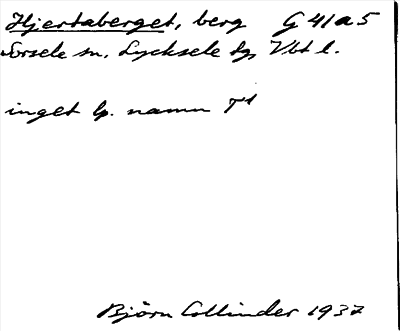 Hjertaberget, berg G 41 a 5
Sorsele sn. Lycksele lm. Vbt l.
inget lp. namn
Björn Collinder 1937